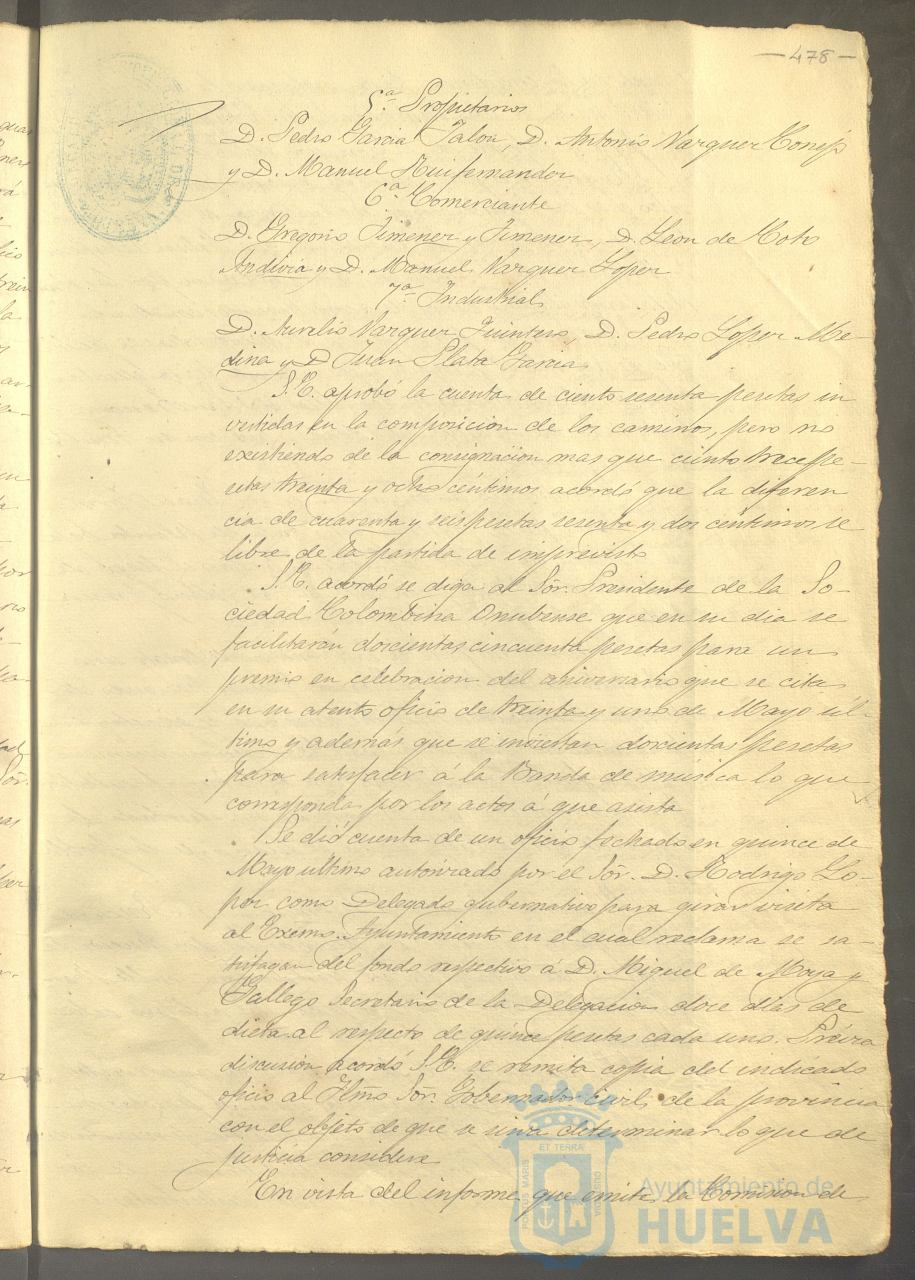 — 478 —
5ª Propietarios
D. Pedro Garcia Jalon, D. Antonio Vazquez
y D. Manuel Ruifernandez
6ª Comerciante
D. Gregorio Jimenez y Jimenez, D. Leon de
y D. Manuel Vazquez Lopez
7ª Industrial
D. Aurelio Vazquez Quintero, D. Pedro Lopez Me-
dina y D Juan Plata Garcia
S. E. aprobó la cuenta de ciento sesenta pesetas in
vertidas en la composicion de los caminos, pero no
existiendo de la consignacion mas que ciento trece pe-
setas treinta y ocho céntimos acordó que la diferen
cia de cuarenta y seis pesetas sesenta y dos céntimos se
libre de la partida de imprevisto
S. E. acordó se diga al Sor. Presidente de la So-
ciedad Colombina Onubense que en su dia se
facilitarán doscientas cincuenta pesetas para un
premio en celebracion del aniversario que se cita
en su atento oficio de treinta y uno de Mayo úl-
timo y además que se inviertan doscientas pesetas
para satisfacer á la Banda de música lo que
corresponda por los actos á que asista
Se dió cuenta de un oficio fechado en quince de
Mayo último autorizado por el Sor. D. Rodrigo Lo-
pez como Delegado Gubernativo para girar visita
al Excmo. Ayuntamiento en el cual reclama se sa-
tisfagan del fondo respectivo á D. Miguel de Moya y
Gallego Secretario de la Delegacion doce dias de
dieta al respecto de quince pesetas cada uno. Prévia
discusion acordó S. E. se remita copia del indicado
oficio al Iltmo Sor. Gobernador civil de la provincia
con el objeto de que se sirva determinar lo que de
justicia considere
En vista del informe que emite la Comision de
PORTUS MARIS ET TERRÆ CUSTODIA
Ayuntamiento de
HUELVA